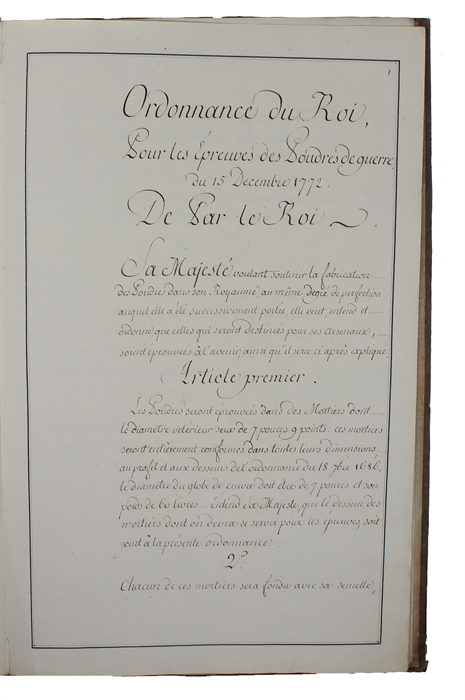 1
Ordonnance du Roi,
Pour les épreuves des Poudres de guerre.
du 15 Decembre 1772.
De Par le Roi
Sa Majesté voulant soutenir la fabrication
des Poudres dans son Royaume, au même degré de perfection
auquel elle a été successivement portée, elle veut, entend et
ordonne que celles qui seront destinées pour ses arsenaux,
soient éprouvées à l'avenir, ainsi qu'il sera ci après expliqué
Article premier.
Les Poudres seront éprouvées dans des Mortiers dont
le diamètre intérieur sera de 7 pouces 9 points: ces mortiers
seront entièrement conformes dans toutes leurs dimensions,
au profil et aux desseins de l'ordonnance du 18 7bre 1686,
le diamètre du globe de cuivre doit être de 7 pouces et son
poids de 60 livres. entend Sa Majesté, que le dessein des
mortiers dont on devra se servir pour les épreuves, soit
joint à la présente ordonnance.
2.°
Chacun de ces mortiers sera fondu avec sa semelle,